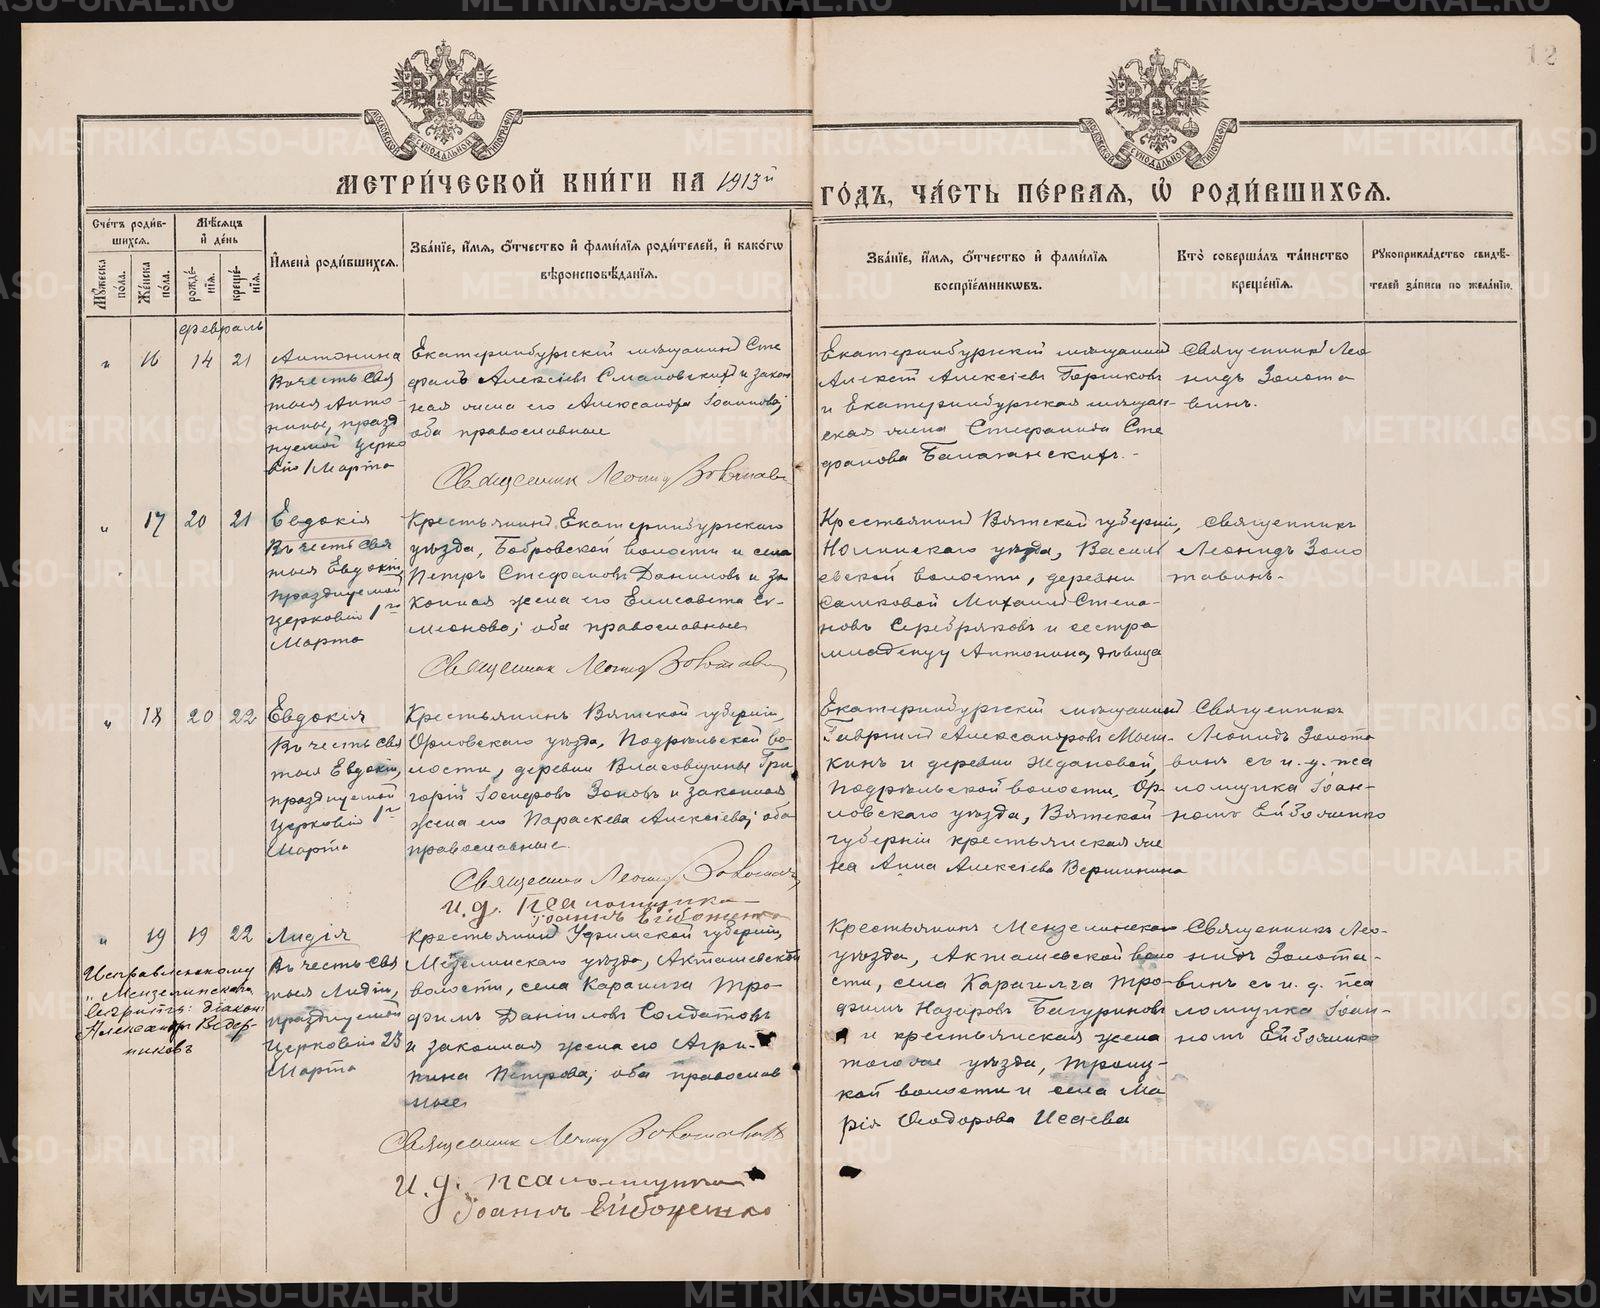 МОСКОВСКОЙ СѴНОДАЛЬНОЙ ТИПОГРАФІИ
МОСКОВСКОЙ СѴНОДАЛЬНОЙ ТИПОГРАФІИ
12
МЕТРИ́ЧЕСКОЙ КНИ́ГИ НА 1913й
ГО́ДЪ, ЧА́СТЬ ПЕ́РВАЯ, Ѽ РОДИ́ВШИХСЯ.
Сче́тъ роди́в-
шихся.
Мѣ́сяцъ
и҆ де́нь
Мꙋ́жеска по́ла.
Же́нска по́ла.
рожде́-
нїя.
креще́-
нїя.
И҆мена̀ роди́вшихся.
Зва́нїе, и҆́мя, ѻ҆́тчество и҆ фами́лїя роди́телей, и҆ како́гѡ
вѣроисповѣ́данїя.
Зва́нїе, и҆́мя, ѻ҆́тчество и҆ фами́лїя
воспрїе́мникѡвъ.
Кто̀ соверша́лъ та́инство
креще́нїя.
Рꙋкоприкла́дство свидѣ́-
телей за́писи по жела́нїю.
февраль
" 16 14 21
Антонина
Въ честь свя
тыя Анто-
нины, празд
нуемой церко
вію 1 Марта
Екатеринбургскій мѣщанинъ Сте
фанъ Алексіевъ и закон
ная жена его Александра Іоаннова;
оба православные
Священник Леонид Золотавин
Екатеринбургскій мѣщанинъ
Алексій Алексіевъ Горшковъ
и Екатеринбургская мѣщан-
ская жена Стефанида Сте
фанова
Священникъ Лео
нидъ Золота
винъ.
" 17 20 21
Евдокія
Въ честь свя
тыя Евдокіи,
празднуемой
церковію 1го
Марта
Крестьянинъ Екатеринбургскаго
уѣзда, Бобровской волости и села
Петръ Стефановъ Даниловъ и за
конная жена его Елисавета Си
меонова; оба православные
Священник Леонид Золотавин
Крестьянинъ Вятской губерніи,
Нолинскаго уѣзда, Василь
евской волости, деревни
Михаилъ Степа-
новъ Серебряковъ и сестра
младенцу Антонина, дѣвица
Священникъ
Леонидъ Золо
тавинъ.
" 18 20 22
Евдокія
Въ честь свя
тыя Евдокіи,
празднуемой
Церковію 1го
Марта
Крестьянинъ Вятской губерніи,
Орловскаго уѣзда, Подрѣльской во
лости, деревни Власовщины Гри
горій Іосифовъ Зоновъ и законная
жена его Параскева Алексіева; оба
православные.
Священник Леонид Золотавин
и. д. Псаломщика
Іоаннъ Ейбоженко
Екатеринбургскій мѣщанинъ
Гавріилъ Александровъ Мош-
кинъ и деревни Ждановой,
Подрѣльской волости, Ор-
ловскаго уѣзда, Вятской
губерніи крестьянская же
на Анна Алексіева Вершинина
Священникъ
Леонидъ Золота
винъ съ и. д. пса
ломщика Іоан-
номъ Ейбоженко
" 19 19 22
Исправленному
"Мензелинскаго"
вѣрить: діаконъ
Александръ Ведер-
никовъ
Лидія
Въ честь свя
тыя Лидіи,
празднуемой
Церковію 23
Марта
Крестьянинъ Уфимской губерніи,
Мензелинскаго уѣзда, Акташевской
волости, села Карашлга Тро-
фимъ Даніиловъ Солдатовъ
и законная жена его Агри-
пина Петрова; оба православ
ные
Священник Леонид Золотавин
и. д. псаломщика
Іоаннъ Ейбоженко
Крестьянинъ Мензелинскаго
уѣзда, Акташевской воло
сти, села Тро-
фимъ Назаровъ Багуриновъ
и крестьянская жена
того же уѣзда, Троиц-
кой волости и села Ма
рія Ѳеодорова Исаева
Священникъ Лео-
нидъ Золота-
винъ съ и. д. пса
ломщика Іоан-
номъ Ейбоженко
METRIKI.GASO-URAL.RU